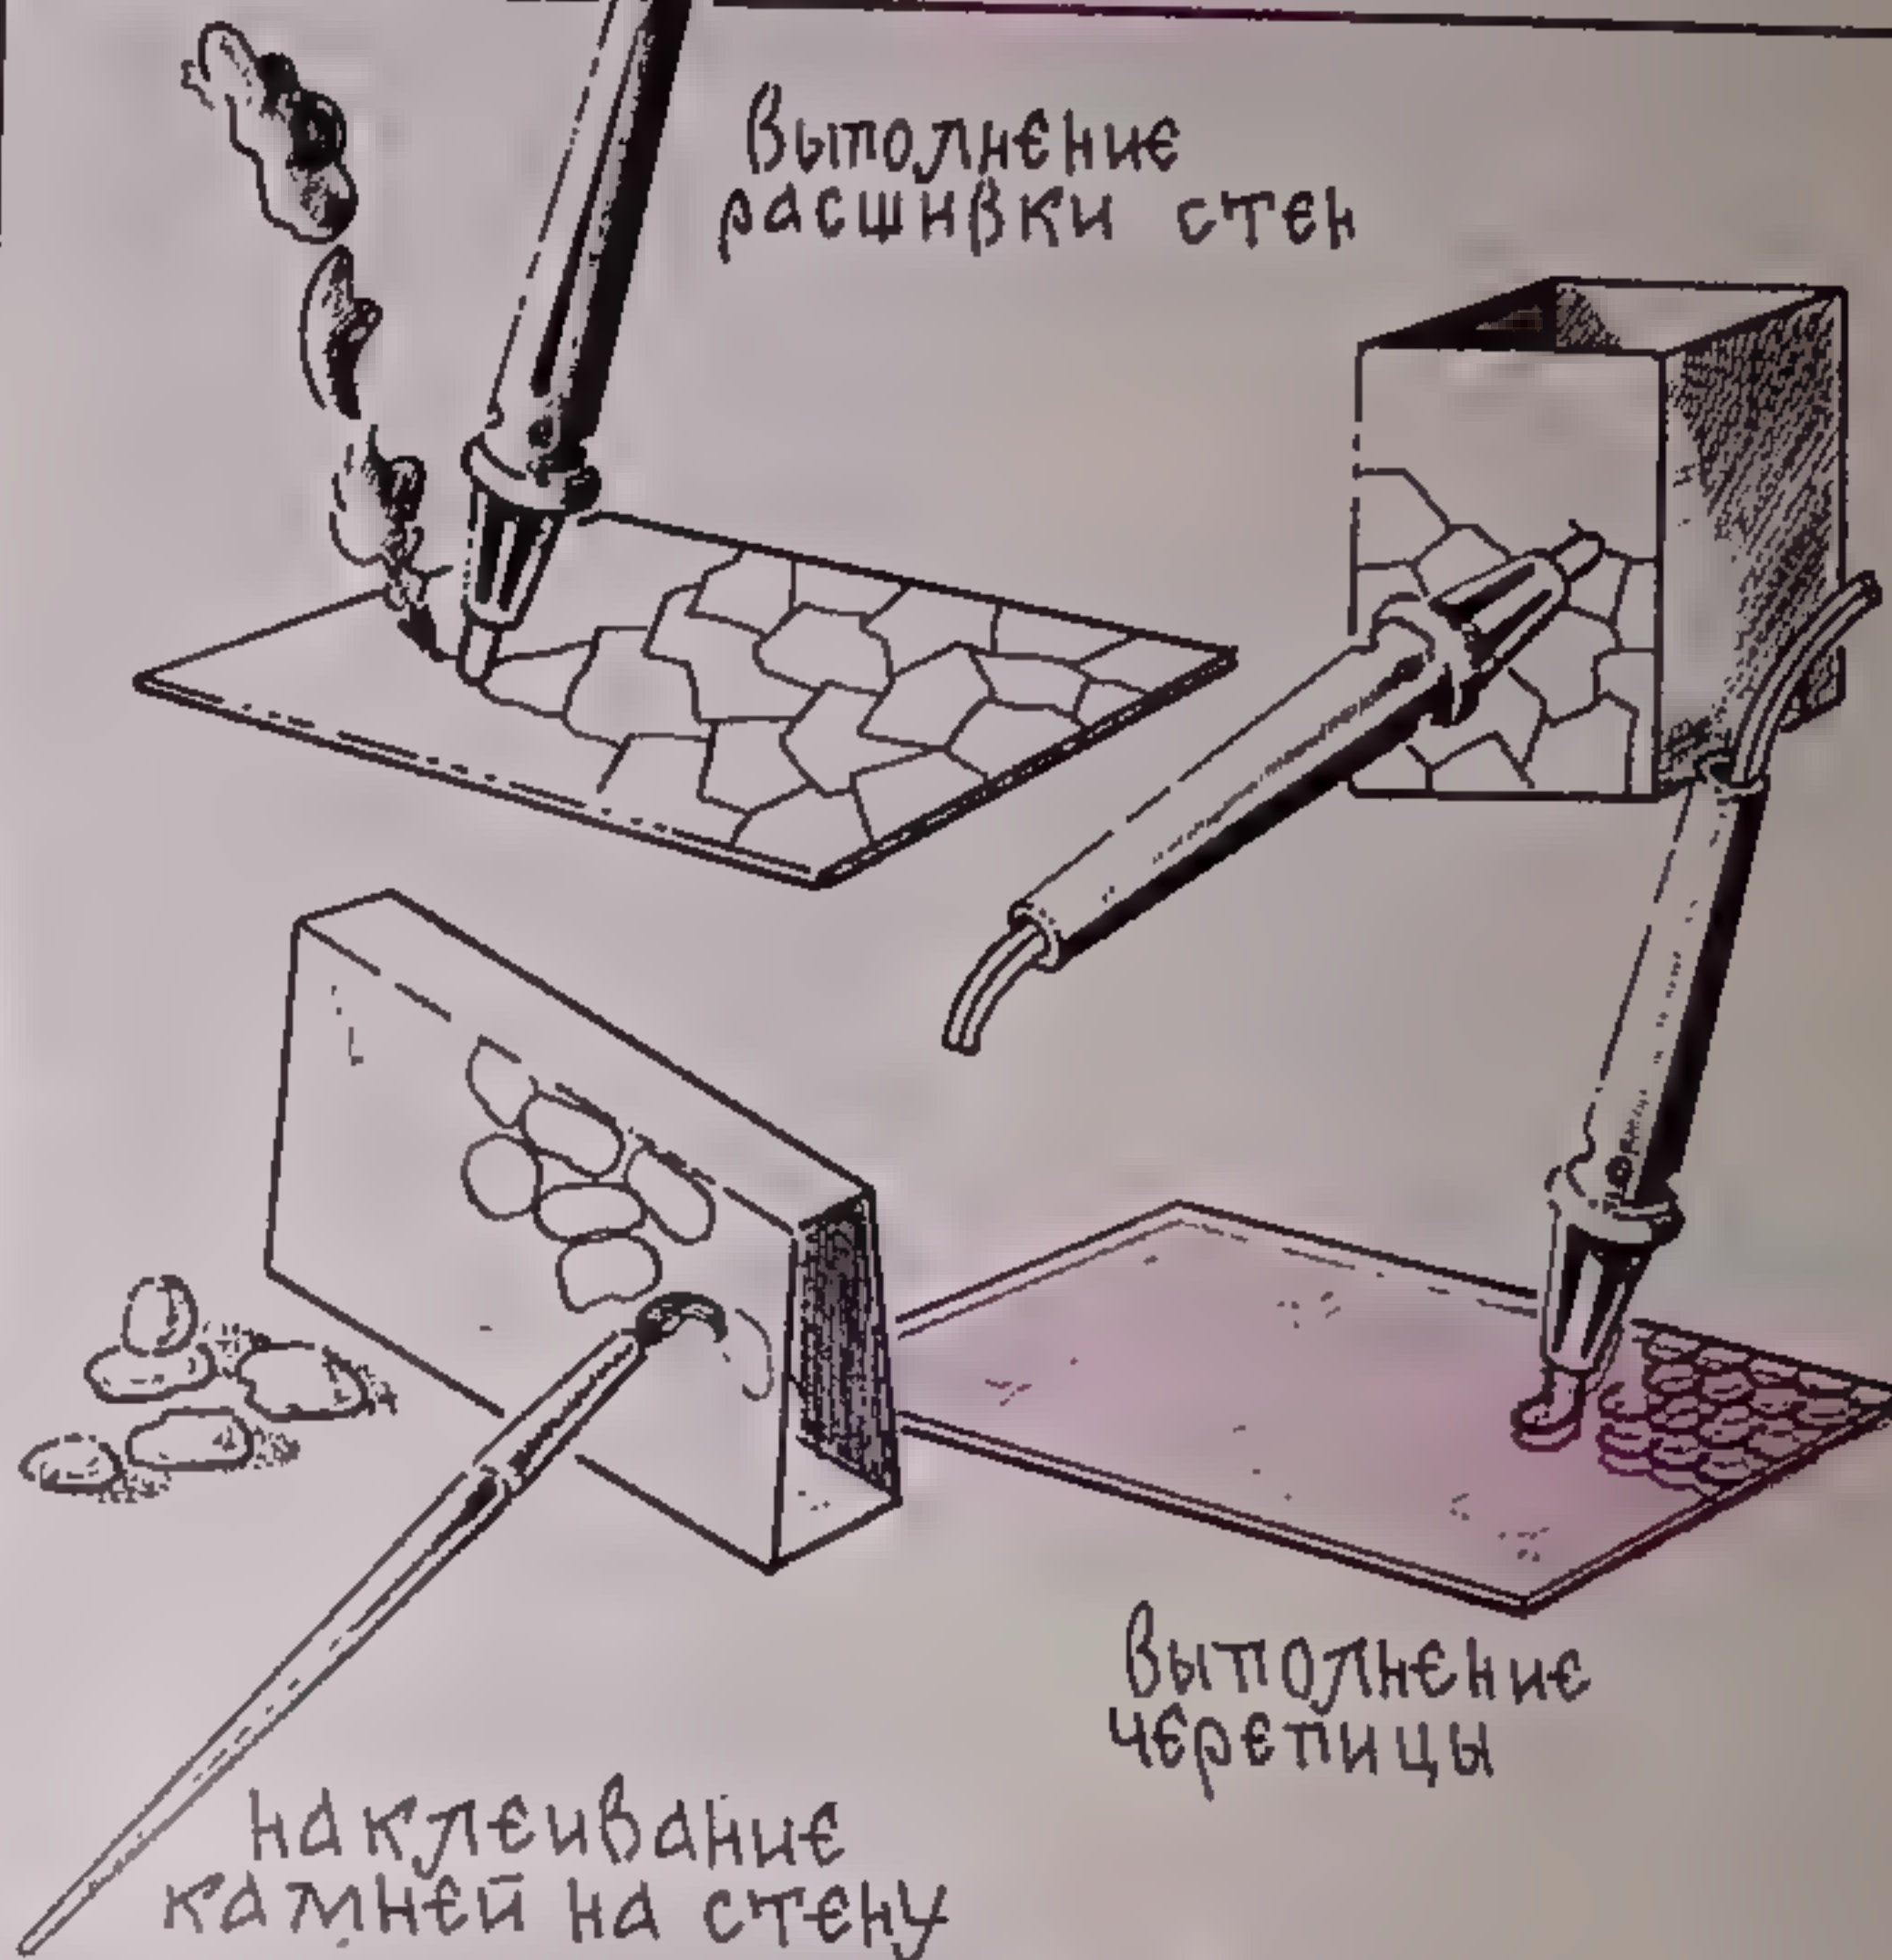 Выполнение
расшивки стен
Выполнение
черепицы
наклеивание
камней на стену